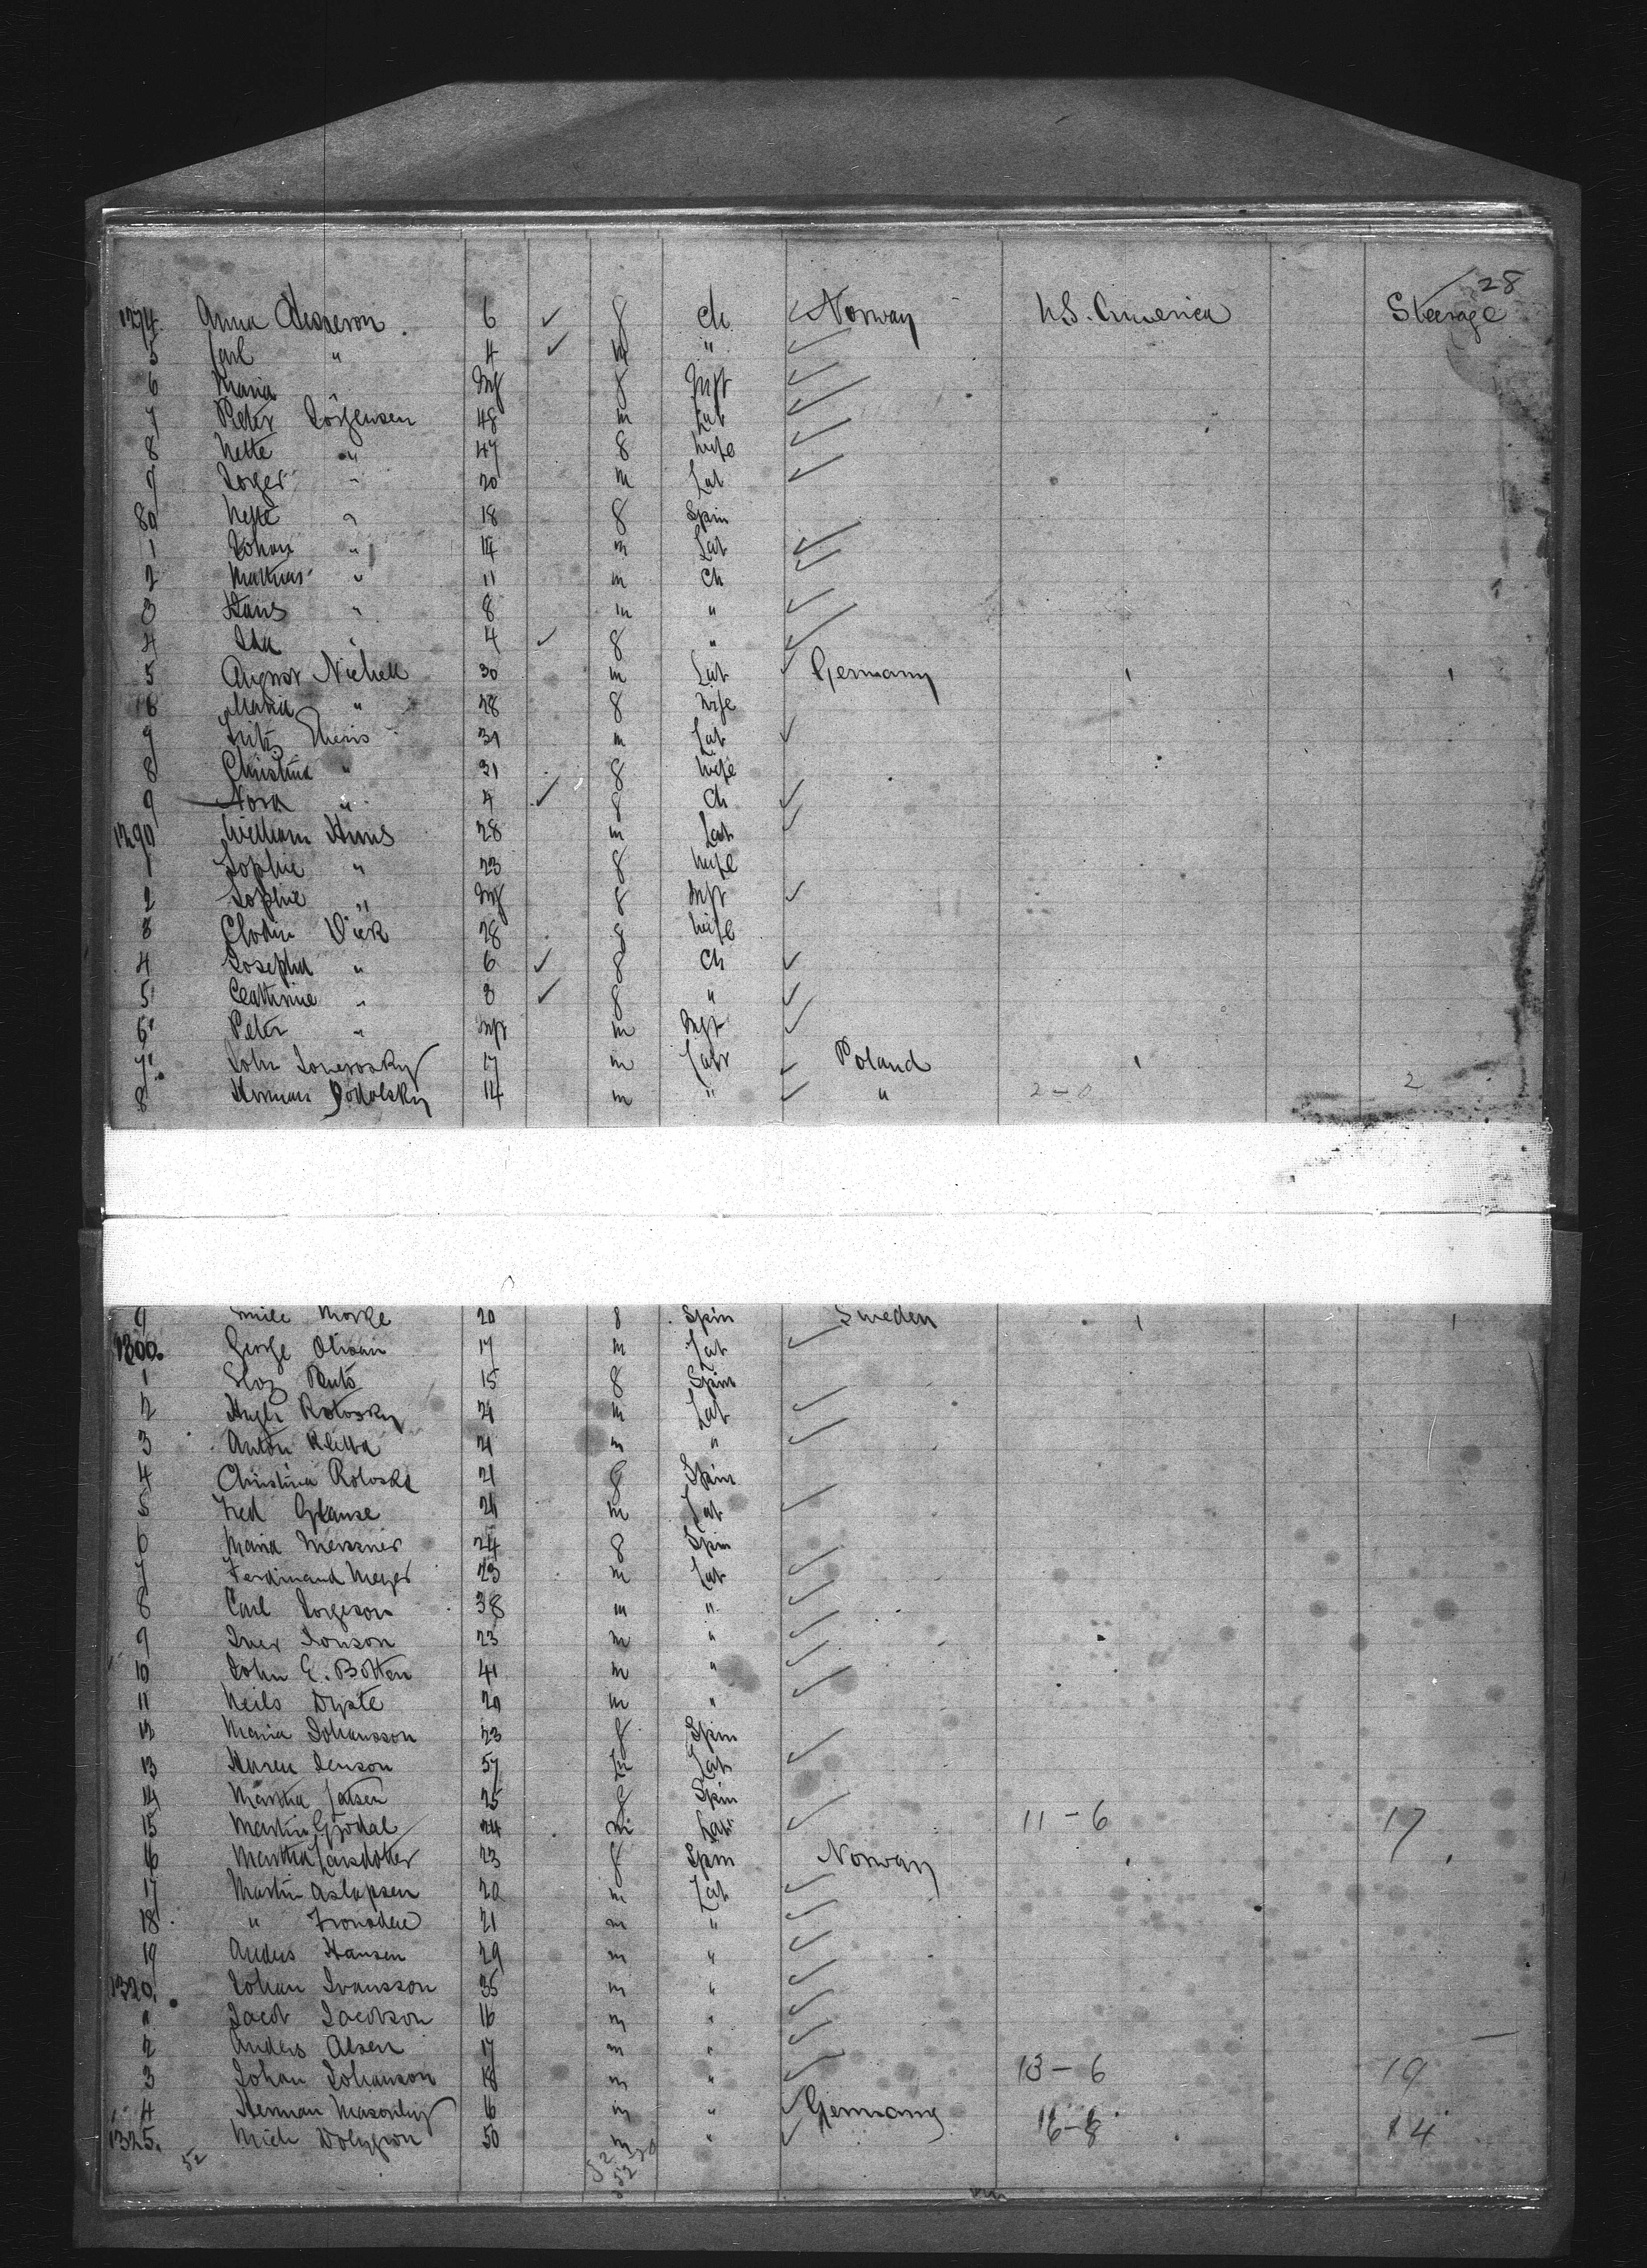 28
1274. Anna 6 ✓ f ch ✓ Norway U.S. America Steerage
5 Carl " 4 ✓ m " ✓
6 Maria Inf f Inft ✓
7 Peter Jörgensen 48 m Lab ✓
8 Nette " 47 f Wife ✓
9 Jorger " 20 m Lab ✓
80 Nette " 18 f Spin
1 Johan " 14 m Lab ✓
2 Mathias " 11 m Ch ✓
3 Hans " 8 m " ✓
4 Ida " 4 ✓ f " ✓
5 August 30 m Lab ✓ Germany
Maria " 28 f Wife
Fritz Theiss 31 m Lab ✓
8 Christina " 31 f Wife
9 Nora " 4 ✓ f Ch ✓
1290 William Hims 28 m Lab ✓
1 Sophie " 23 f Wife
2 Sophie " Inf f Inft ✓
3 Vick 28 f Wife
4 Josepha " 6 ✓ f Ch ✓
5 Cathrine " 8 ✓ f " ✓
6 Peter " Inft m Inft ✓
7 John 17 m Labr ✓ Poland
8 Podolsky 14 m " ✓ " 2-0 2
9 Emile Morke 20 f Spin Sweden
1300. George 17 m Lab ✓
1 15 f Spin
2 Hugh Rotosky 21 m Lab ✓
3 Anton 21 m " ✓
4 Christina 21 f Spin
5 Fred 21 m Lab ✓
6 Maria Meissner 24 f Spin
7 Ferdinand Meyer 23 m Lab ✓
8 Carl Jorgeson 38 m " ✓
9 Iver Jonson 23 m " ✓
10 John E. Botten 41 m " ✓
11 Neils Dyste 20 m " ✓
12 Maria Johansson 23 f Spin
13 Karen Jenson 57 m Lab ✓
14 Martha 25 f Spin
15 Martin Gjödal 24 m Lab ✓ 11-6 17
16 Martha Larsdotter 23 f Spin Norway
17 Martin Aslapsen 20 m Lab ✓
18 " 21 m " ✓
19 Anders Hansen 29 m " ✓
1320. Johan Ivansson 35 m " ✓
Jacob Jacobson 16 m " ✓
2 Anders Alsen 17 m " ✓
3 Johan Johanson 18 m " ✓ 13-6 19
4 Herman 16 m " ✓ Germany
1325. 50 m " ✓ 16-8 14
52